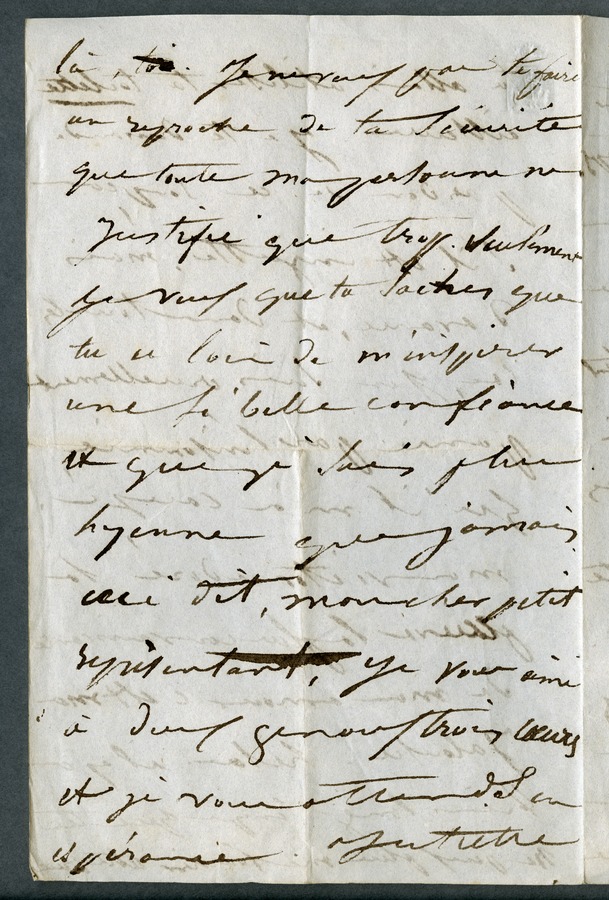 là, toi. Je ne veux pas te faire
un reproche de ta sécurité
que toute ma personne ne
justifie que trop. Seulement
je veux que tu saches que
tu es loin de m'inspirer
une si belle confiance
et que je suis plus
hyenne que jamais
ceci dit, mon cher petit
représentant, je vous aime
à deux genoux trois cœurs
et je vous attends en
espérance Juliette